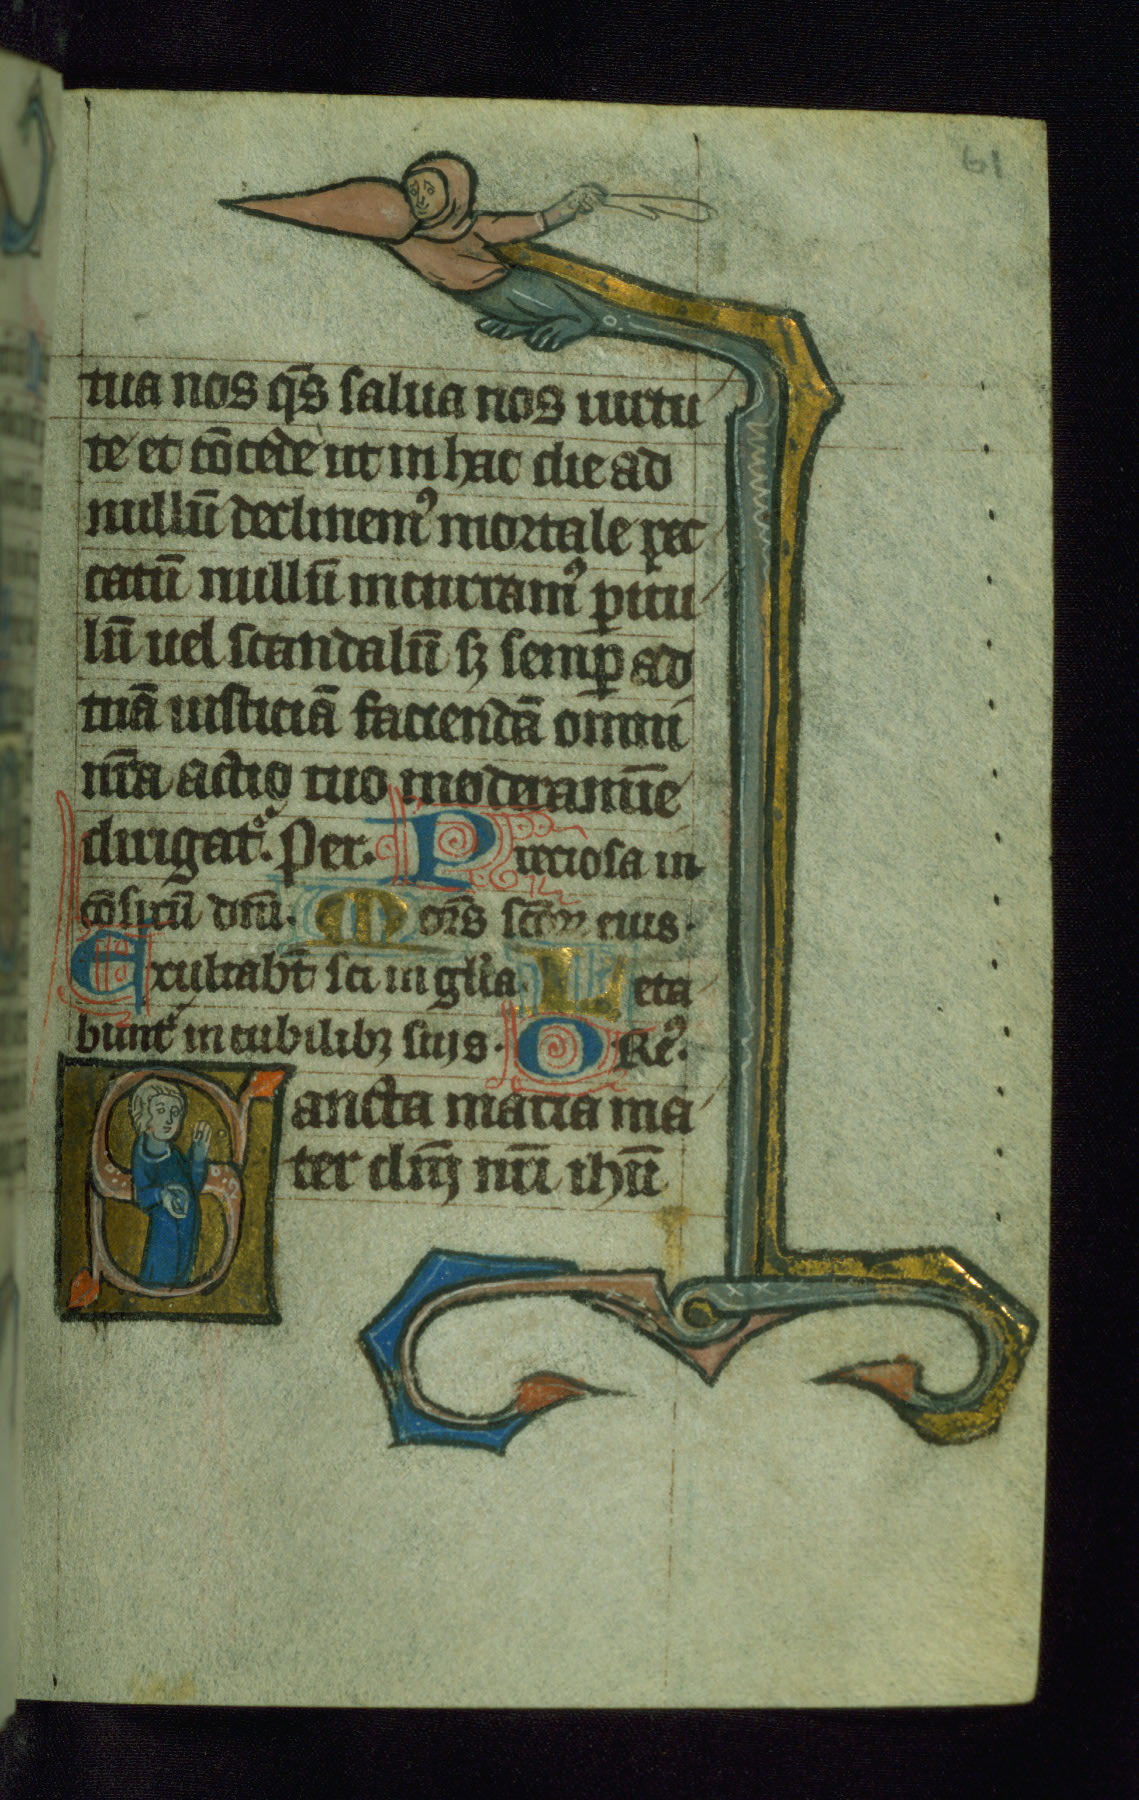 61
tua nos q̄s salua nos uirtu
te et cōcede ut in hac die ad
nullū declinemꝰ mortale pec
catū nullū incurramꝰ ꝑicu
lū uel scandalū sꝫ semꝑ ad
tuā iusticiā faciendā omni
nr̄a actio tuo moderamīe
dirigat᷑. Per. Preciosa in
cōspcū dn̄i. Mors sc̄oꝝ eius.
Exultabt̄ sc̄i in gl̄ia. Leta
bunt᷑ in cubilibꝫ suis. O Rēꝰ.
Sancta maria ma
ter dn̄i nr̄i ihū